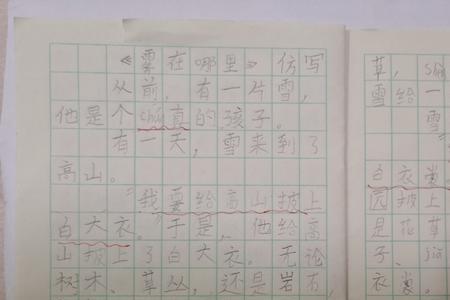 《雾在哪里》仿写
从前，有一片雪，
他是个chún真的孩子。
有一天，雪来到了
高山。
“我要给高山披上
白大衣。”于是，他给高
山披上了白大衣。无论
树木、草丛，还是岩石，
草，
雪给一
雪
白衣裳
园披上
是花草
子、jià
衣裳。